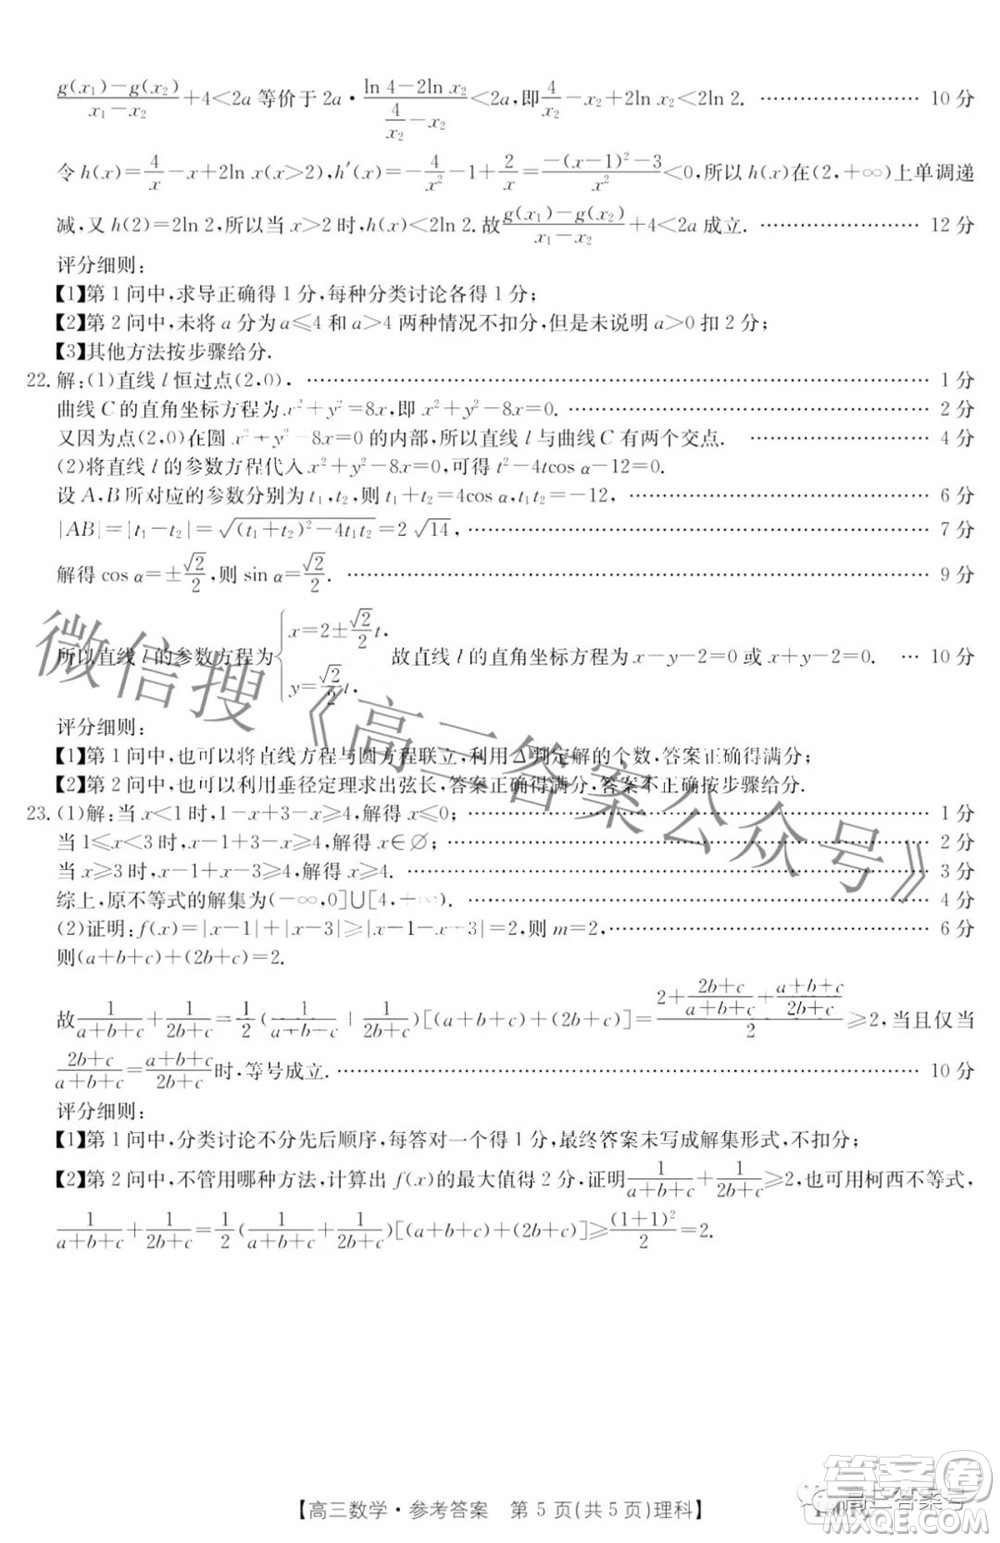 \frac{g(x₁)-g(x₂)}{x₁-x₂}+4<2a 等价于 2a·\frac{ln 4-2ln x₂}{\frac{4}{x₂}-x₂}<2a,即\frac{4}{x₂}-x₂+2ln x₂<2ln 2. …………………… 10 分
令 h(x)=\frac{4}{x}-x+2ln x(x>2),h′(x)=-\frac{4}{x²}-1+\frac{2}{x}=\frac{-(x-1)²-3}{x²}<0,所以 h(x)在(2,+∞)上单调递
减,又 h(2)=2ln 2,所以当 x>2 时,h(x)<2ln 2.故\frac{g(x₁)-g(x₂)}{x₁-x₂}+4<2a成立. …………………… 12 分
评分细则:
【1】第 1 问中,求导正确得 1 分,每种分类讨论各得 1 分;
【2】第 2 问中,未将 a 分为a≤4 和 a>4 两种情况不扣分,但是未说明 a>0 扣 2 分;
【3】其他方法按步骤给分.
22.解:(1)直线 l 恒过点(2,0), …………………… 1 分
曲线 C 的直角坐标方程为x²+y²=8x,即 x²+y²-8x=0. …………………… 2 分
又因为点(2,0)在圆 x²+y²-8x=0的内部,所以 l 与曲线C 有两个交点. …………………… 4 分
(2)将直线 l 的参数方程代入 x²+y²-8x=0,可得 t²-4tcos α-12=0.
设 A,B 所对应的参数分别为 t₁,t₂,则 t₁+t₂=4cos α,t₁t₂=-12, …………………… 6 分
|AB|=|t₁-t₂|=\sqrt{(t₁+t₂)²-4t₁t₂}=2\sqrt{14}, …………………… 7 分
解得 cos α=±\frac{\sqrt{2}}{2},则 sin α=\frac{\sqrt{2}}{2}. …………………… 9 分
所以直线 l 的参数方程为{x=2±\frac{\sqrt{2}}{2}t, y=\frac{\sqrt{2}}{2}t, 故直线 l 的直角坐标方程为 x-y-2=0 或 x+y-2=0. … 10 分
评分细则:
【1】第 1 问中,也可以将直线方程与圆方程联立,利用Δ判定解的个数,答案正确得满分;
【2】第 2 问中,也可以利用垂径定理求出弦长,答案正确得满分,答案不正确按步骤给分.
23.(1)解:当 x<1 时,1-x+3-x≥4,解得 x≤0; …………………… 1 分
当 1≤x<3 时,x-1+3-x≥4,解得 x∈∅; …………………… 2 分
当 x≥3 时,x-1+x-3≥4,解得 x≥4. …………………… 3 分
综上,原不等式的解集为(-∞,0]∪[4,+∞). …………………… 4 分
(2)证明:f(x)=|x-1|+|x-3|≥|x-1-x+3|=2,则 m=2, …………………… 6 分
则(a+b+c)+(2b+c)=2.
故\frac{1}{a+b+c}+\frac{1}{2b+c}=\frac{1}{2}(\frac{1}{a+b+c}+\frac{1}{2b+c})[(a+b+c)+(2b+c)]=\frac{2+\frac{2b+c}{a+b+c}+\frac{a+b+c}{2b+c}}{2}≥2,当且仅当
\frac{2b+c}{a+b+c}=\frac{a+b+c}{2b+c}时,等号成立. …………………… 10 分
评分细则:
【1】第 1 问中,分类讨论不分先后顺序,每答对一个得 1 分,最终答案未写成解集形式,不扣分;
【2】第 2 问中,不管用哪种方法,计算出 f(x)的最大值得 2 分,证明\frac{1}{a+b+c}+\frac{1}{2b+c}≥2,也可用柯西不等式,
\frac{1}{a+b+c}+\frac{1}{2b+c}=\frac{1}{2}(\frac{1}{a+b+c}+\frac{1}{2b+c})[(a+b+c)+(2b+c)]≥\frac{(1+1)²}{2}=2.
微信搜《高三答案公众号》
【高三数学·参考答案 第 5 页(共 5 页)理科】
答案卷
高三答案号